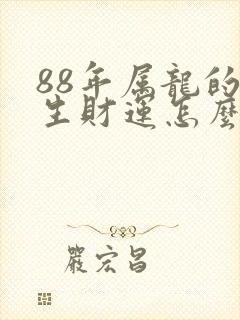 88年属龍的
生財運怎麼
嚴宏昌